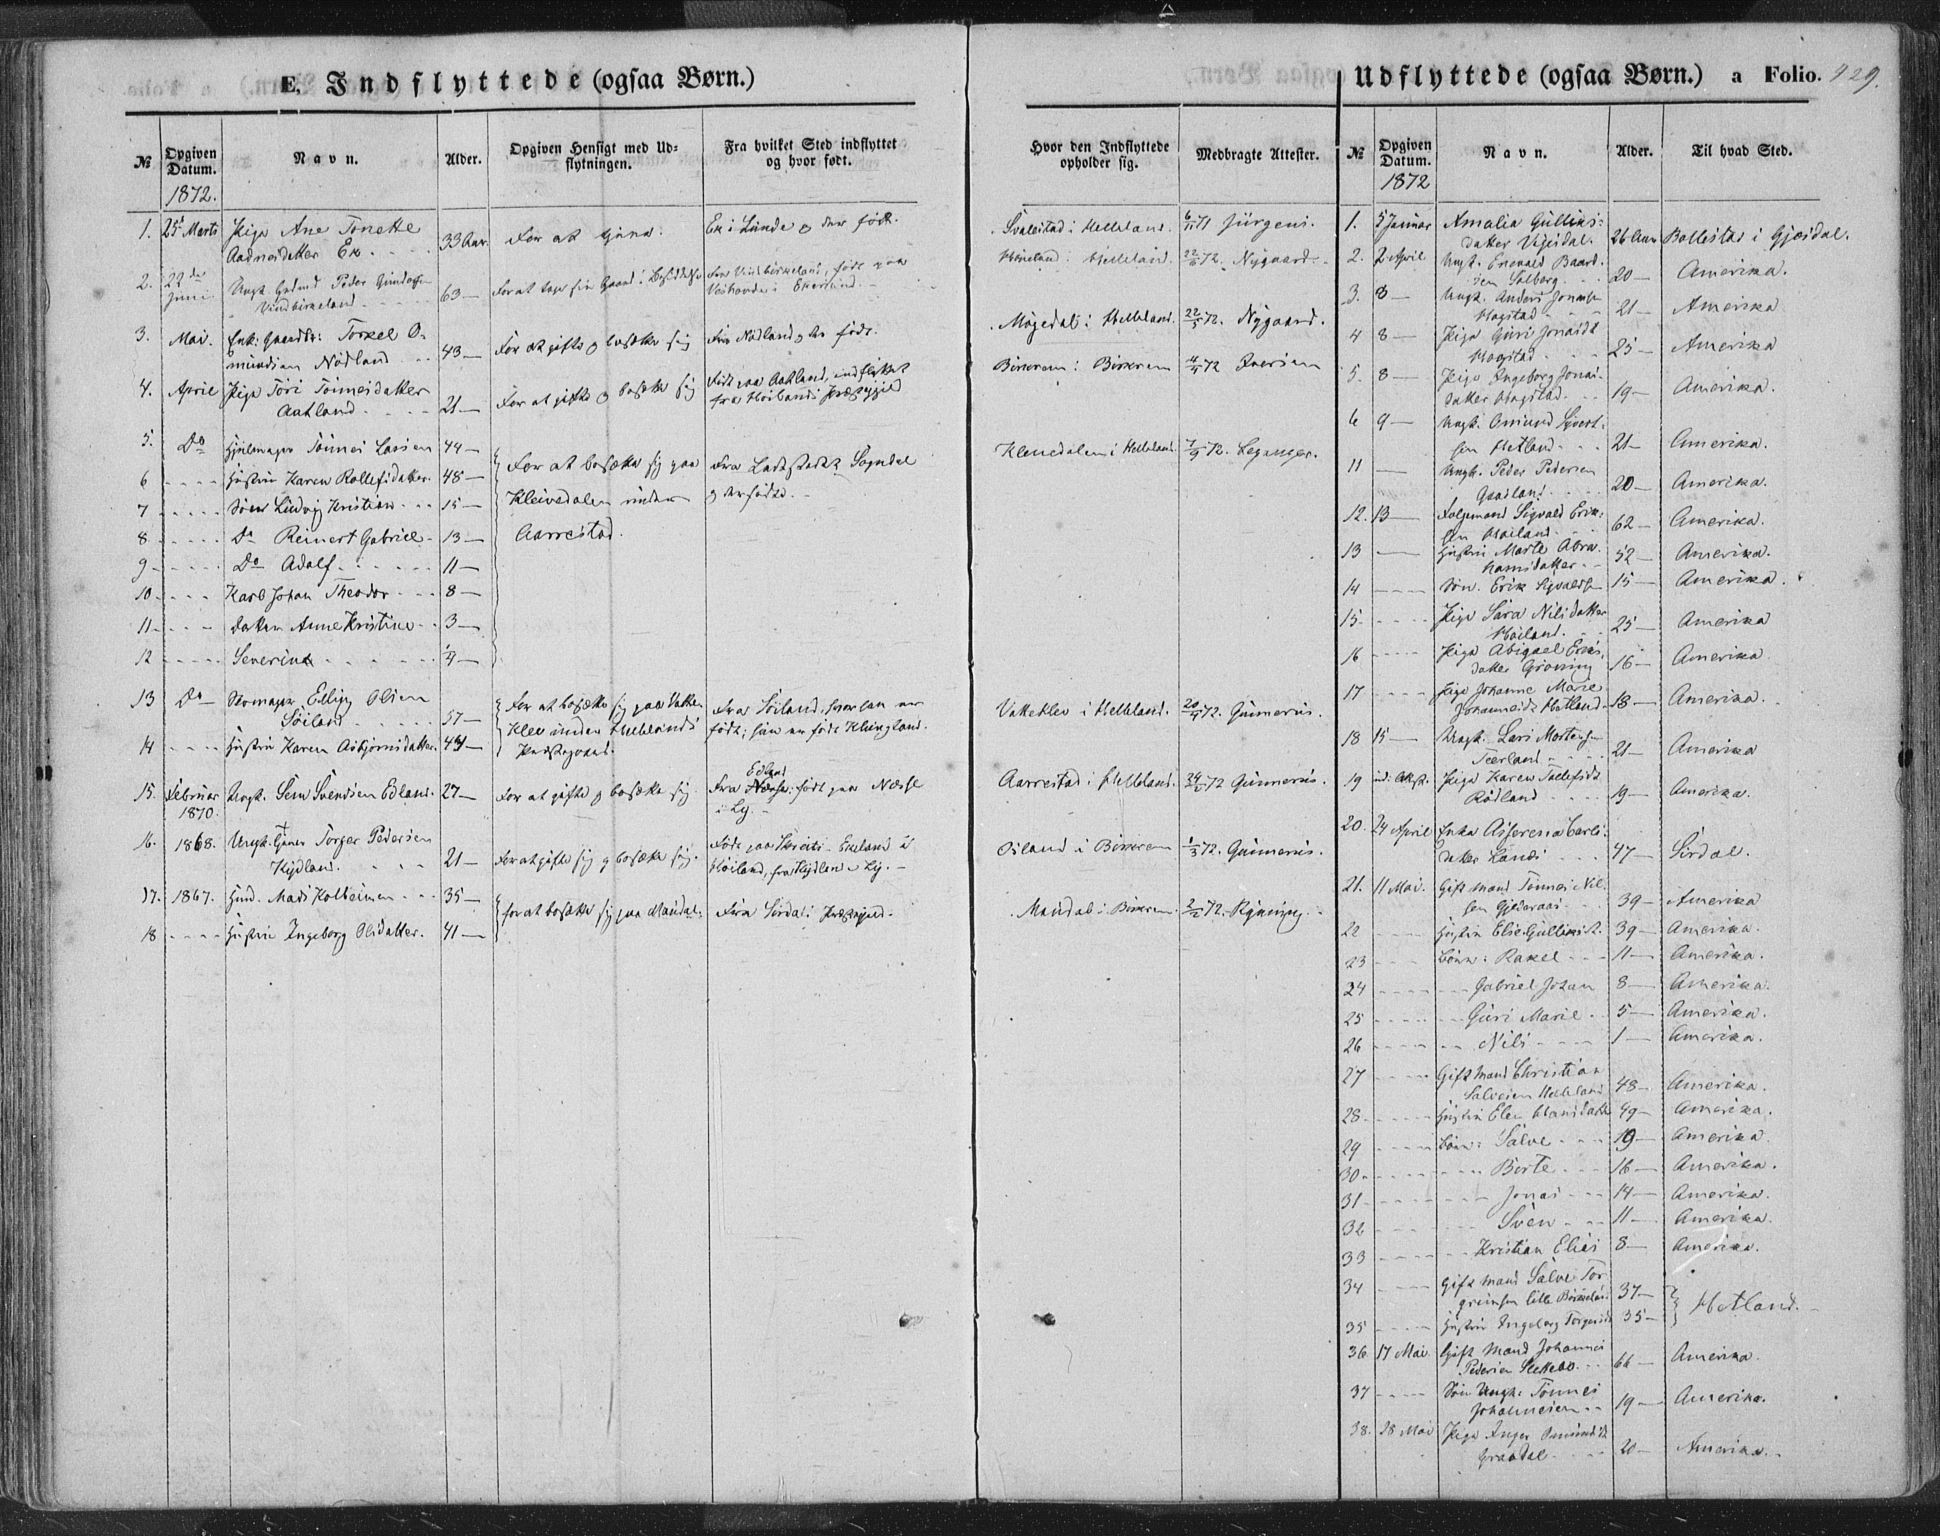 E. Indflyttede (ogsaa Børn.)
№ Opgiven Datum. Navn. Alder. Opgiven Hensigt med Udflytningen. Fra hvilket Sted indflyttet og hvor født.
1872.
1. 25 Marts Pige Ane Tonette
Aadnesdatter Ek 33 Aar. For at tjene. Ek i Lunde og der født.
2. 22de Juni Ungk. Gaard Peder
Vindbirkeland 63 For at tage sin Gaard i Besiddelse Fra Vindbirkeland, født paa
i Ekersund
3. Mai. Enk: Torkel O-
mundsen Nodland 43 For at gifte og bosætte sig Fra Nodland, der født.
4. April Pige Tori Tønnesdatter
Aatland 21 For at gifte og bosætte sig Født paa Aatland, indflyttet
fra Høilands Præstegjeld
5. Do Tønnes Lassen 44
6 Hustru Karen Rollefsdatter 48 For at bosætte sig paa Fra Ladestedet Sogndal
7 Søn Ludvig Kristian 15 Kleivedalen under og der fødte.
8 Do Reinert Gabriel 13 Aarrestad.
9 Do Adolf 11
10 Karl Johan Theodor 8
11 Datter Anne Kristine 3
12 Severine
13 Do Elling Olsen
Søiland 57 For at bosætte sig paa Vatte- Fra Søiland, hvor han er
14 Hustru Karen Asbjørnsdatter 49 Klev under Hellelands født; hun er født Klungland.
Præstegaard.
15. Februar Ungk. Sven Svendsen Edland. 27 For at gifte og bosætte sig Fra Edland født paa Næse
1870. i Ly.
16. 1868. Ungk. Torger Pedersen
Kydland. 21 For at gifte sig og bosætte sig. Født paa Eikeland i
Høiland, fra Kydland i Ly.
17. 1867. Husm. Mads Kolbeinsen 35 For at bosætte sig paa Mandal. Fra Sirdals Præstegjeld.
18 Hustru Ingeborg Olsdatter. 41
Hvor den Indflyttede opholder sig. Medbragte Attester.
Svalestad i Helleland. 6/11 71 Jürgens.
i Helleland. 22/6 72. Nygaard.
Møgedal i Helleland. 22/5 72. Nygaard.
Birkrem i Birkrem 4/4 72 Iversen
Klevedalen i Helleland. 7/9 72. Leganger.
Vatteklev i Helleland. 20/4 72. Gunnerus.
Aarrestad i Helleland. 24/5 72 Gunnerus.
Osland i Birkrem 1/3 72. Gunnerus.
Mandal i Birkrem 2/2 72. Kyning.
Udflyttede (ogsaa Børn.) a Folio. 429.
№ Opgiven Datum. Navn. Alder. Til hvad Sted.
1872
1. 5 Januar Amalia Gulliks-
datter Veisdal. 26 Aar Bollestad i Gjæsdal.
2. 2 April Ungk. Enevald Baard-
sen Solberg 20 Amerika.
3. 8 Ungk. Anders Jonassen
Hogstad 21 Amerika
4 8 Pige Guri Jonasdt
Hogstad 25 Amerika
5. 8 Pige Ingeborg Jonas-
datter Hogstad 19 Amerika.
6 9 Ungk. Omund Sivert-
sen Hetland 21 Amerika.
11 Ungk. Peder Pedersen
20 Amerika.
12. 13 Folgemand Sigvald Erik-
sen Høiland 62 Amerika.
13 Hustru Marte Abra-
hamsdatter 52 Amerika.
14 Søn. Erik Sigvaldsen 15 Amerika.
15. Pige Sara Nilsdatter
Høiland. 25 Amerika
16 Pige Abigael Eriks-
datter Grøning 16 Amerika
17 Pige Johanne Marie
Johannesdt. Hetland 18 Amerika
18 15 Ungk. Lars Mortensen
Terland 21 Amerika
19 ind. Attest. Pige Karen Tollefsdt
Rødland 19 Amerika.
20. 24 April Enke Asserena Carls-
datter Lande 47 Sirdal.
21. 11 Mai. Gift Mand Tønnes Nil-
sen Gjederaas 39 Amerika
22 Hustru Elise Gulliksdt. 39 Amerika.
23 Børn: Rakel 11 Amerika.
24 Gabriel Johan 8 Amerika.
25 Guri Marie 5 Amerika.
26 Nils 1 Amerika.
27 Gift Mand Christian
Salvesen Helleland 48 Amerika.
28 Hustru Elen Hansdatter 49 Amerika.
29 Børn: Salve 19 Amerika.
30 Berte 16 Amerika.
31 Jonas 14 Amerika.
32 Sven 11 Amerika.
33 Kristian Elias 8 Amerika.
34 Gift Mand Salve Tor-
greimsen lille Birkeland 37 Hetland.
35 Hustru Ingeborg Torgersdt 35
36 17 Mai. Gift Mand Johannes
Pedersen Slettebø. 66 Amerika.
37 Søn Ungk: Tønnes
Johannesen 19 Amerika.
38. 28 Mai Pige Inger Omundsdt
Graadal 20 Amerika.